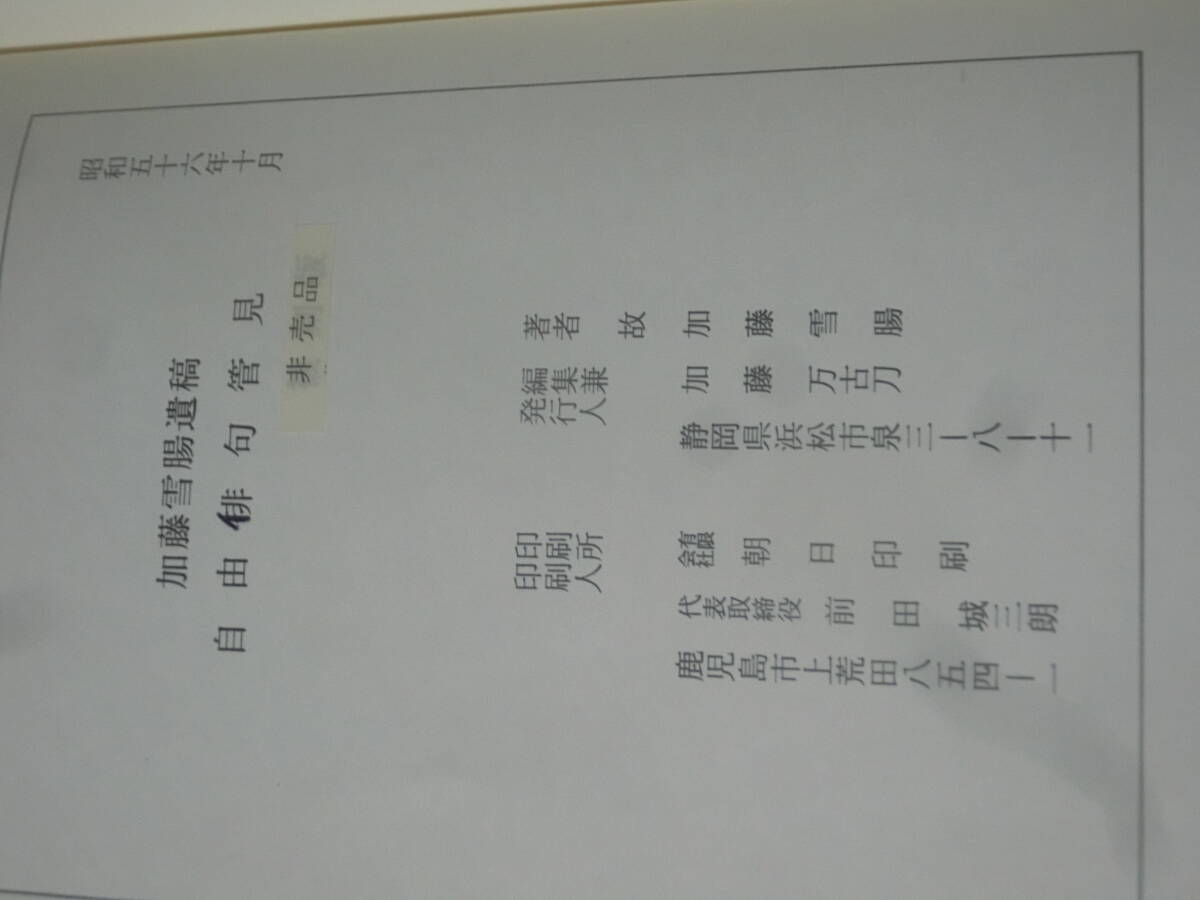 昭和五十六年十月
加藤雪腸遺稿
自由俳句管見
非売品
著者 故 加藤雪腸
編集兼
発行人 加藤万古刀
静岡県浜松市泉三ー八ー十一
印刷所
印刷人 有限会社 朝日印刷
代表取締役 前田城三朗
鹿児島市上荒田八五四ー一